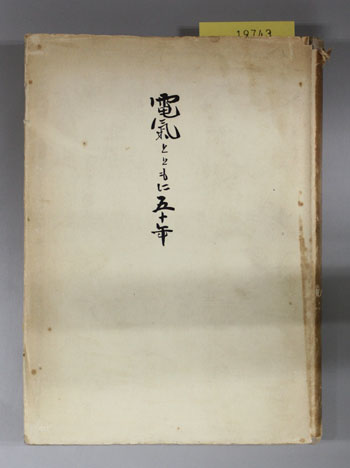 19743
電氣とともに五十年